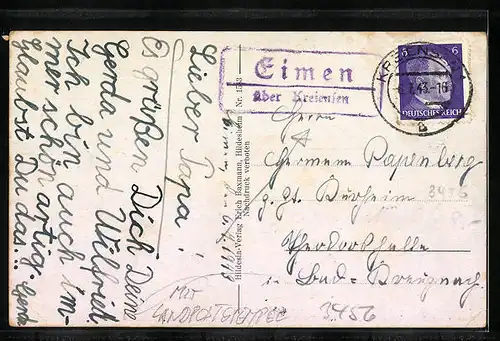 Lieber Papa!
Es grüßen Dich Deine
Gerda und Wilfried.
Ich bin auch im-
mer schön artig.
Glaubst Du das..: Gerda
Hildesia-Verlag Erich Baxmann, Hildesheim Nr. 1
Nachdruck verboten
Eimen
über Kreiensen
6 6
DEUTSCHES REICH
KREIENSEN
43-16
b
Herrn
Hermann Papenberg
z. Zt.
Theodorshalle
in Bad-Kreuznach
MIT
LANDPOSTSTEMPEL
3456